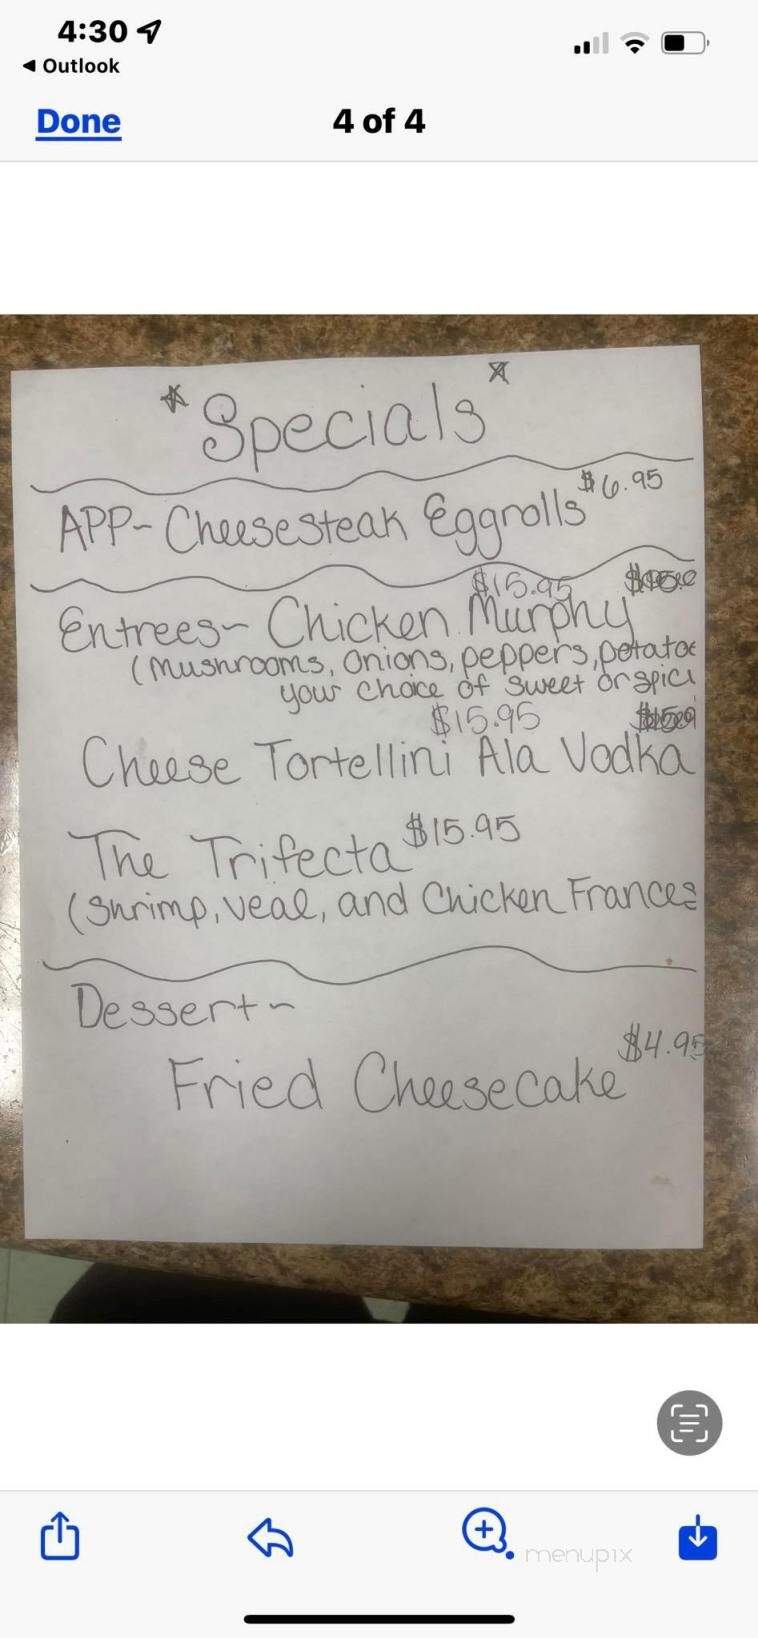 4:30
◀ Outlook
Done
4 of 4
*Specials*
$6.95
APP~ Cheesesteak Eggrolls
$15.95
Entrees~ Chicken Murphy
(Mushrooms, Onions, peppers, potatoe
your choice of sweet or spici
$15.95
Cheese Tortellini Ala Vodka
The Trifecta $15.95
(Shrimp, veal, and Chicken Frances
Dessert~
$4.95
Fried Cheesecake
menupix